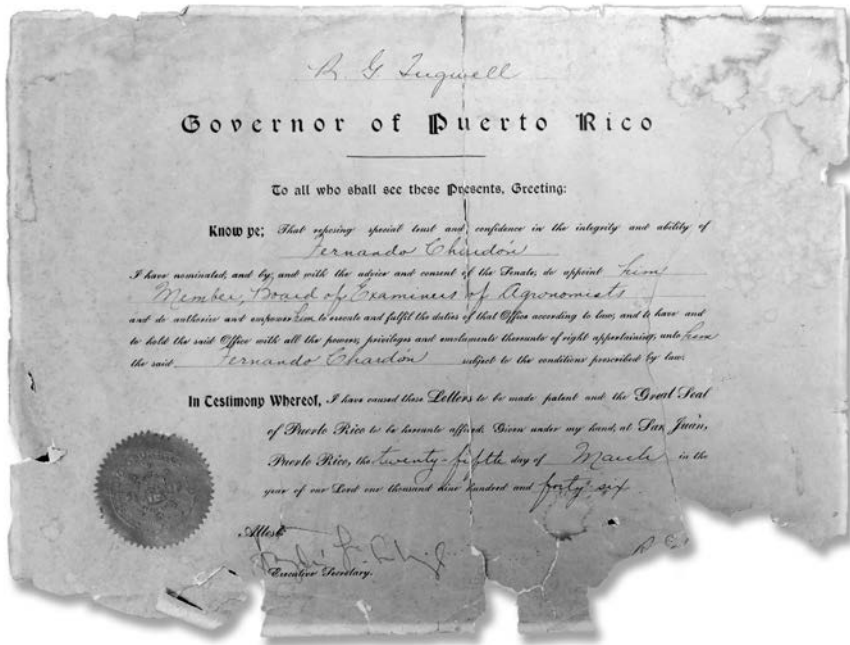 R G Tugwell
Governor of Puerto Rico
To all who shall see these Presents, Greeting:
Know ye; That reposing special trust and confidence in the integrity and ability of
Fernando Chardón
I have nominated, and by, and with the advice and consent of the Senate, do appoint him
Member, Board of Examiners of Agronomists
and do authorize and empower him to execute and fulfil the duties of that Office according to law; and to have and
to hold the said Office with all the powers, privileges and emoluments thereunto of right appertaining, unto him
the said Fernando Chardón subject to the conditions prescribed by law.
In Testimony Whereof, I have caused these Letters to be made patent and the Great Seal
of Puerto Rico to be hereunto affixed. Given under my hand, at San Juan,
Puerto Rico, the twenty-fifth day of March in the
year of our Lord one thousand nine hundred and forty six.
Attest:
Executive Secretary.